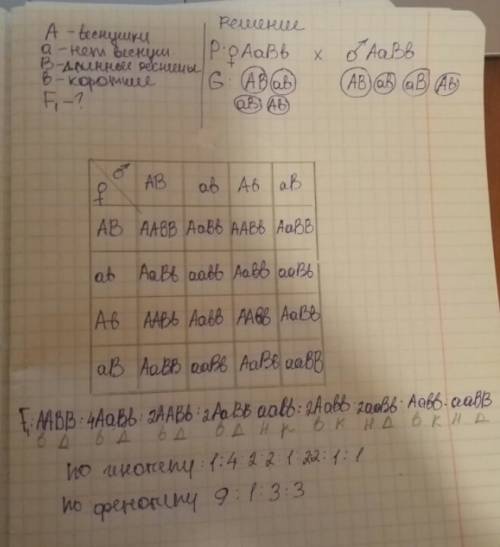 А - веснушки
а - нет веснуш
В - длинные ресницы
в - короткие
F₁ - ?
Решение
P: ♀ АаВв × ♂ АаВв
G: АВ ав АВ ав аВ Ав
аВ Ав
♀ ♂ АВ ав Ав аВ
АВ ААВВ АаВв ААВв АаВВ
ав АаВв аавв Аавв ааВв
Ав ААВв Аавв ААвв АаВв
аВ АаВВ ааВв АаВв ааВВ
F₁: ААВВ : 4АаВв : 2ААВв : 2АаВВ аавв : 2Аавв : 2ааВв : Аавв : ааВВ
В Д В Д В Д В Д Н К В К Н Д В К Н Д
по генотипу : 1 : 4 2 : 2 1 : 22 : 1 : 1
по фенотипу 9 : 1 : 3 : 3